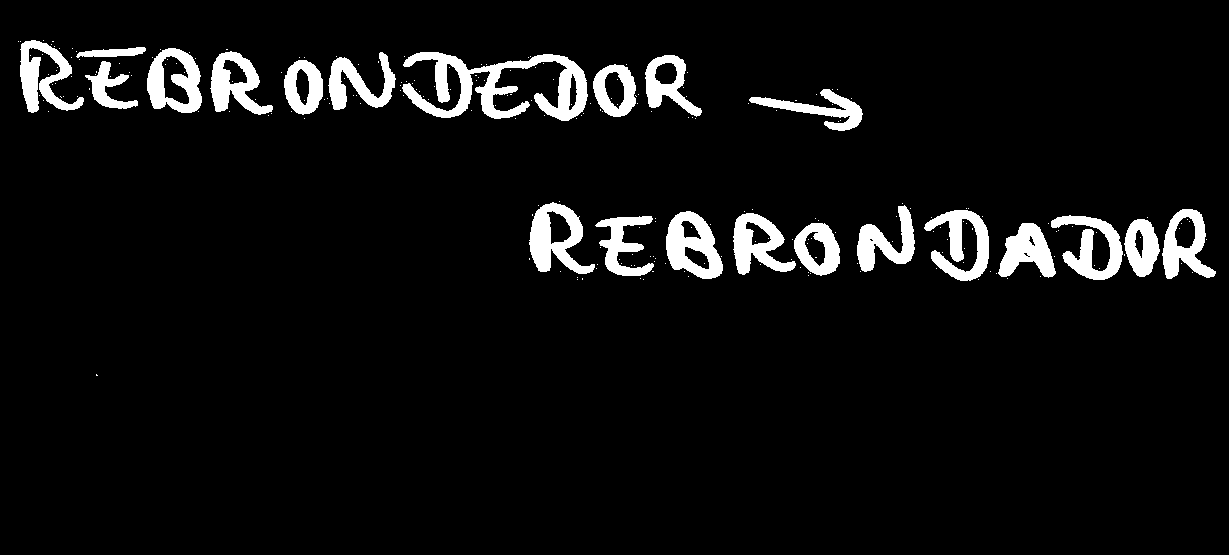 REBRONDEDOR →
REBRONDADOR